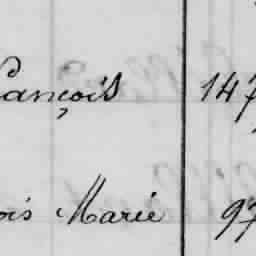 ançois 147
ois Marie 97